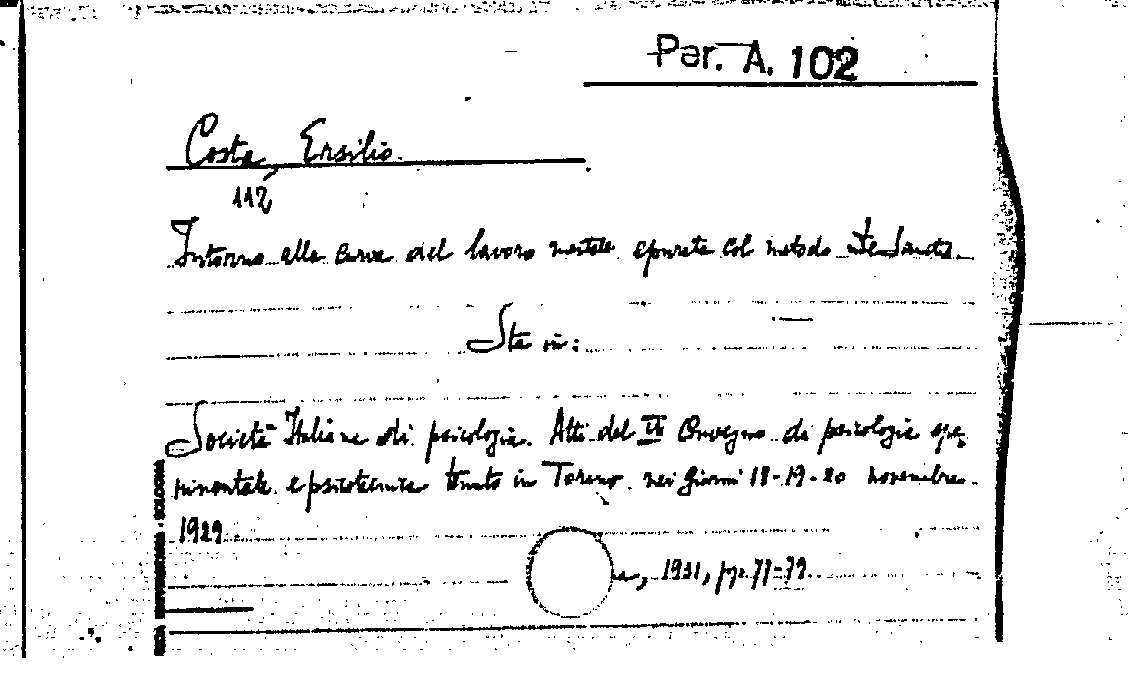 Per. A. 102
Costa, Ersilio.
112
Intorno alla curva del lavoro mentale epurata col metodo De Sanctis.
Sta in:
Società Italiana di psicologia. Atti del Convegno di psicologia spe
rimentale e psicotecnica tenuto in Torino nei giorni 18-19-20 novembre
1929
, 1931, pp. 77-79.
BOLOGNA